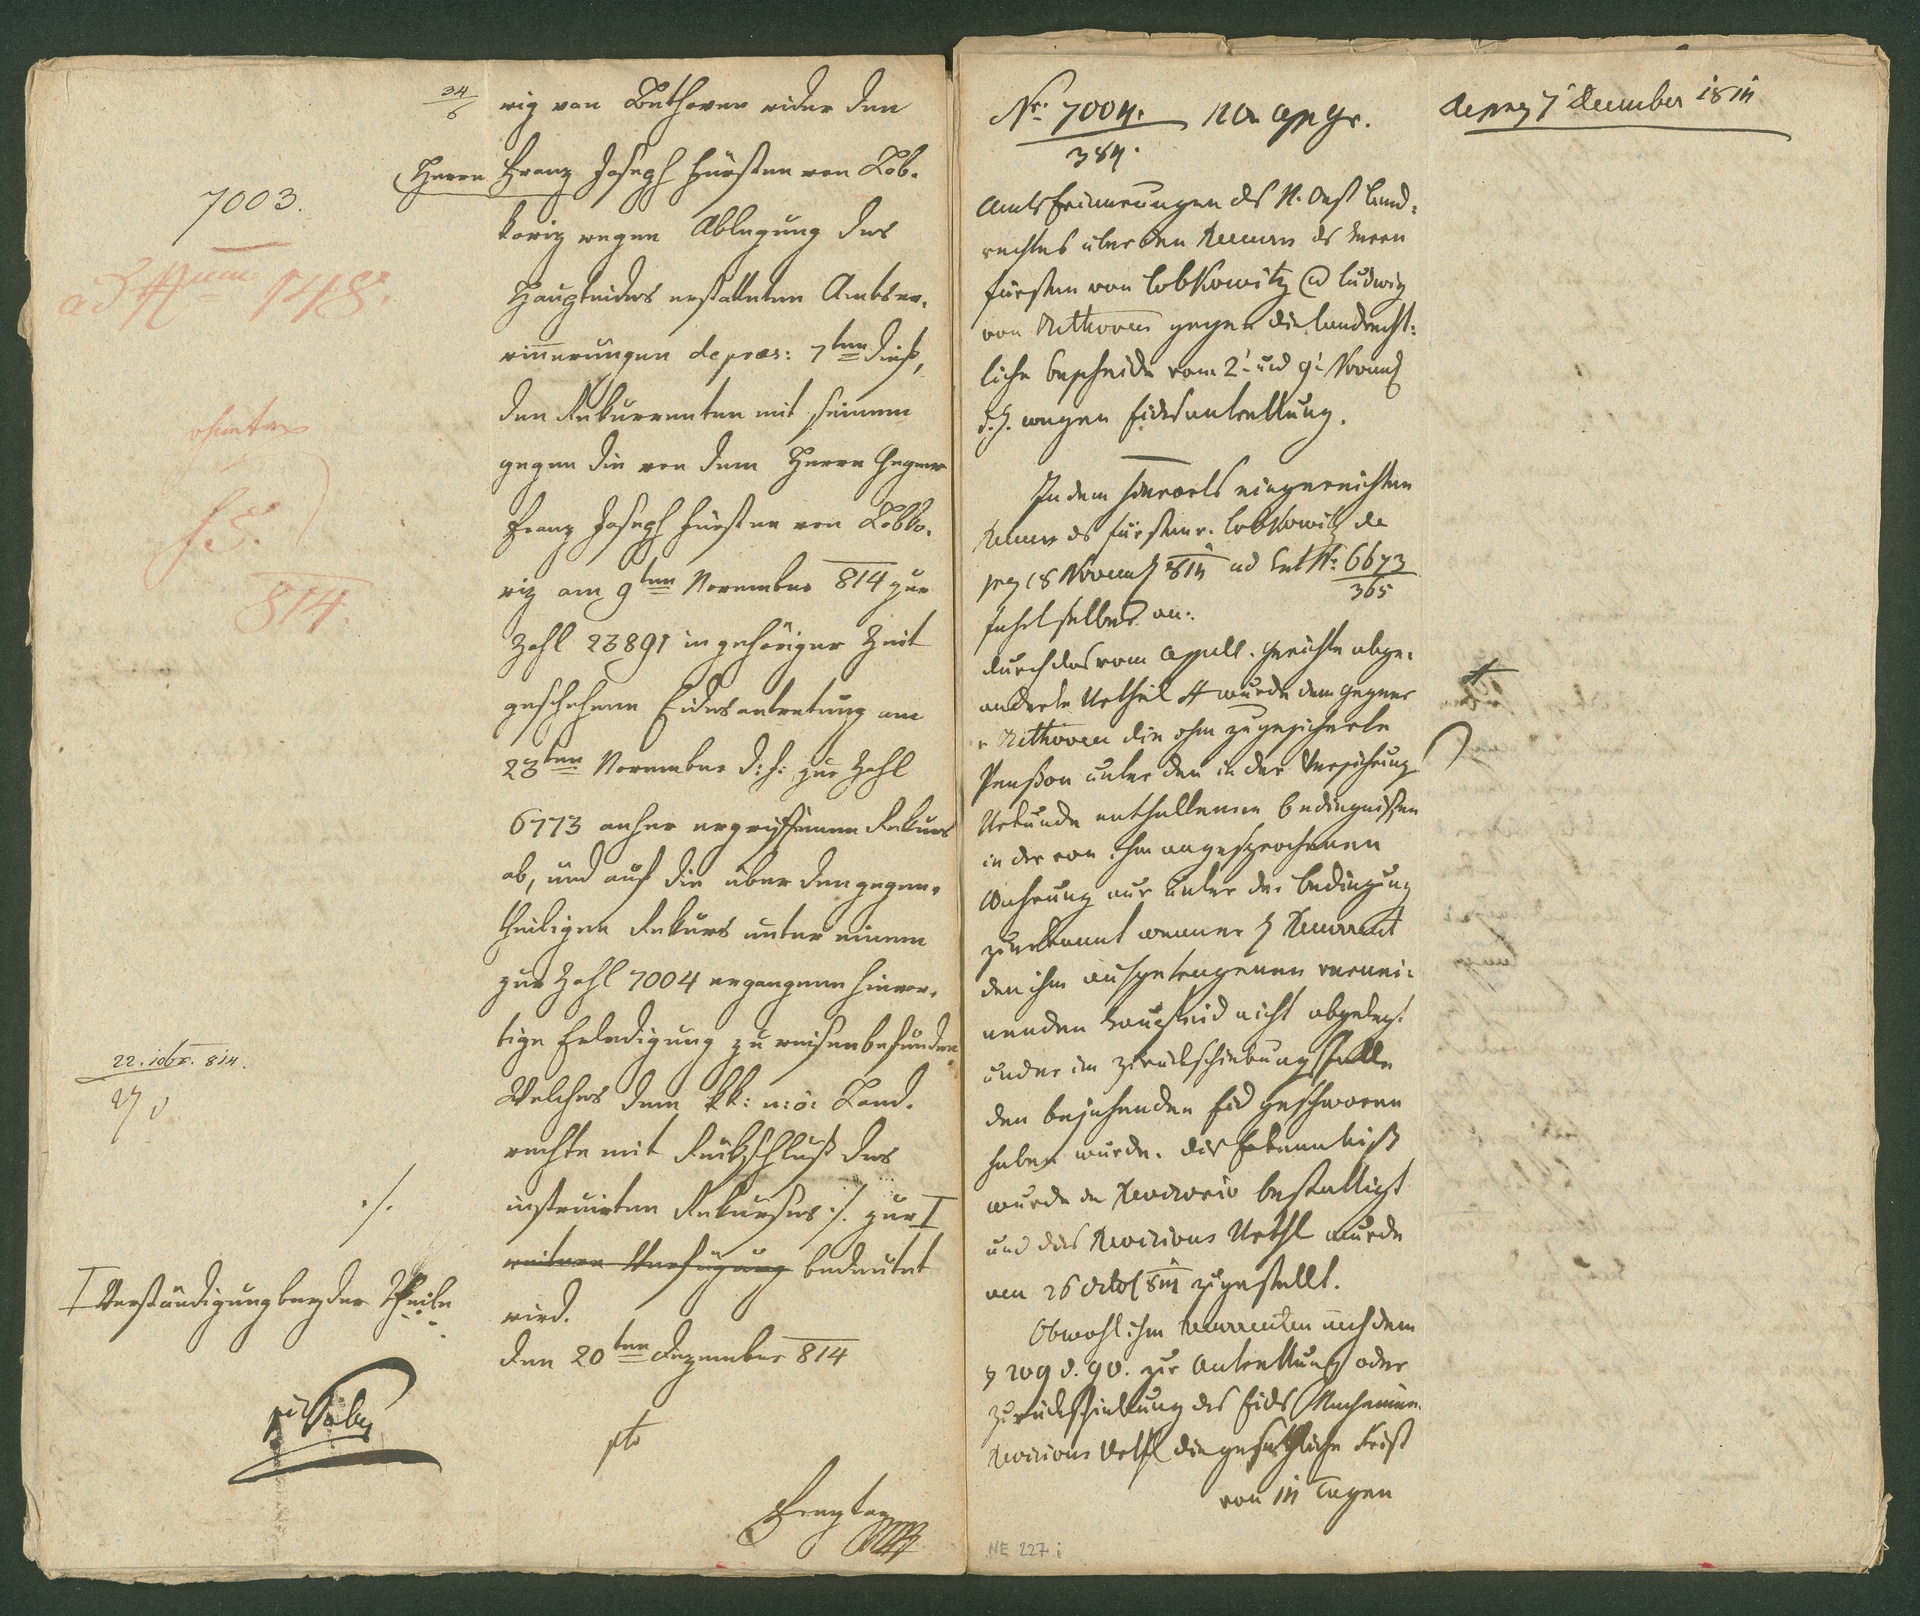 34/6
7003.
ad Num 148.
814.
22. 10br. 814.
./.
I Verständigung beyder Theile
wig von Bethoven wider den
Herrn Franz Joseph Fürsten von Lob-
kowiz wegen Ablegung des
Haupteides erstatteten Amtser-
rinnerungen de praes: 7ten dieß,
den Rekurrenten mit seinem
gegen die von dem Herrn Gegner
Franz Joseph Fürsten von Lobko-
wiz am 9ten November 814 zur
Zahl 23891 in gehöriger Zeit
geschehene Eidesantretung am
23ten November d: J: zur Zahl
6773 anher ergriffenen Rekurs
ab, und auf die über den gegen-
theiligen Rekurs unter einem
zur Zahl 7004 ergangene hieror-
tige Erledigung zu weisen befunden
Welches dem kk: n: ö: Land-
rechte mit Rückschluß des
instruirten Rekurses ./. zur I
weitern Verfügung bedeutet
wird.
Den 20ten Dezember 814
Freytag
No. 7004.
384.
de praes 7 December 1814
Amts Erinnerungen des N. Oest Land-
rechtes über den Recurs des Herrn
Fürsten von Lobkowitz Ludwig
von Bethoven gegen die landrecht-
liche Bescheide vom 2. und 9. Novemb
d. J. wegen Eidesantrettung.
In dem hierorts eingereichten
Recurs des Fürsten v. Lobkowitz de
18 Novemb 814 ad No. 6673
365
führt selber an:
durch das vom Appell. Gerichte abge-
änderte Urtheil wurde dem Gegner
v Bethoven die ihm zugesicherte
Pension unter den in der Versicherung
Urkunde enthaltenen Bedingnissen
in der von ihm angesprochenen
Währung nur unter der Bedingung
zuerkannt wenn er Recurrent
den ihm aufgetragenen vernei-
nenden Haupteid nicht abgelegt
und er im Zurückschiebungsfalle
den bejahenden Eid geschworen
haben würde. Dies Erkenntniß
wurde in Revisorio bestättigt
und das Revisions Urthl wurde
am 26 Octob 814 zugestellt.
Obwohl ihm Recurrenten nach dem
§ 209 d. G O. zur Antrettung oder
Zurückschiebung des Eids
Revisions Urthl die gesetzliche Frist
von 14 Tagen
NE 227 i